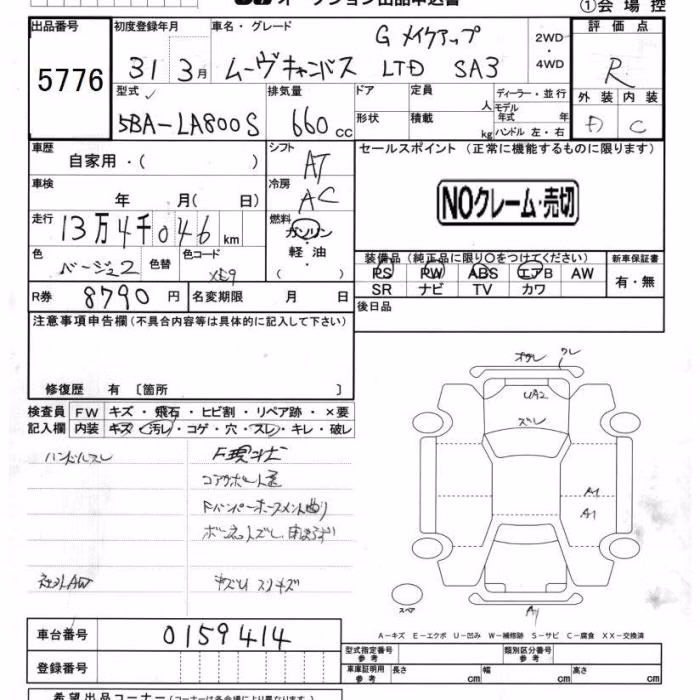 ①会場控
出品番号 初度登録年月 車名・グレード 評価点
5776 31 3月 ムーヴキャンバス G メイクアップ LTD SA3 2WD・4WD R
型式 排気量 ドア 定員 人 ディーラー・並行 外装 内装
5BA-LA800S 660cc 形状 積載 kg モデル年式 年 ハンドル 左・右 C
車歴 シフト セールスポイント (正常に機能するものに限ります)
自家用・( ) AT
車検 冷房 NOクレーム・売切
年 月( 日) AC
走行 燃料
13万4千046km ガソリン・軽油( )
色 色替 色コード 装備品 (純正品に限り○をつけてください) 新車保証書
ベージュ2 PS PW ABS エアB AW 有・無
R券 8790円 名変期限 月 日 SR ナビ TV カワ
注意事項申告欄(不具合内容等は具体的に記入して下さい) 後日品
修復歴 有 〔箇所 〕
検査員 FW キズ・飛石・ヒビ割・リペア跡・×要
記入欄 内装 キズ・汚レ・コゲ・穴・スレ・キレ・破レ
UA2
ズレ
ハンドルスレ
コアサポート
A1
A1
社外AW キズ スリキズ
スペア
A-キズ E-エクボ U-凹み W-補修跡 S-サビ C-腐食 XX-交換済
車台番号 0159414
型式指定番号 参考 類別区分番号 参考
登録番号 車庫証明用 参考 長さ cm 幅 cm 高さ cm
希望出品コーナー